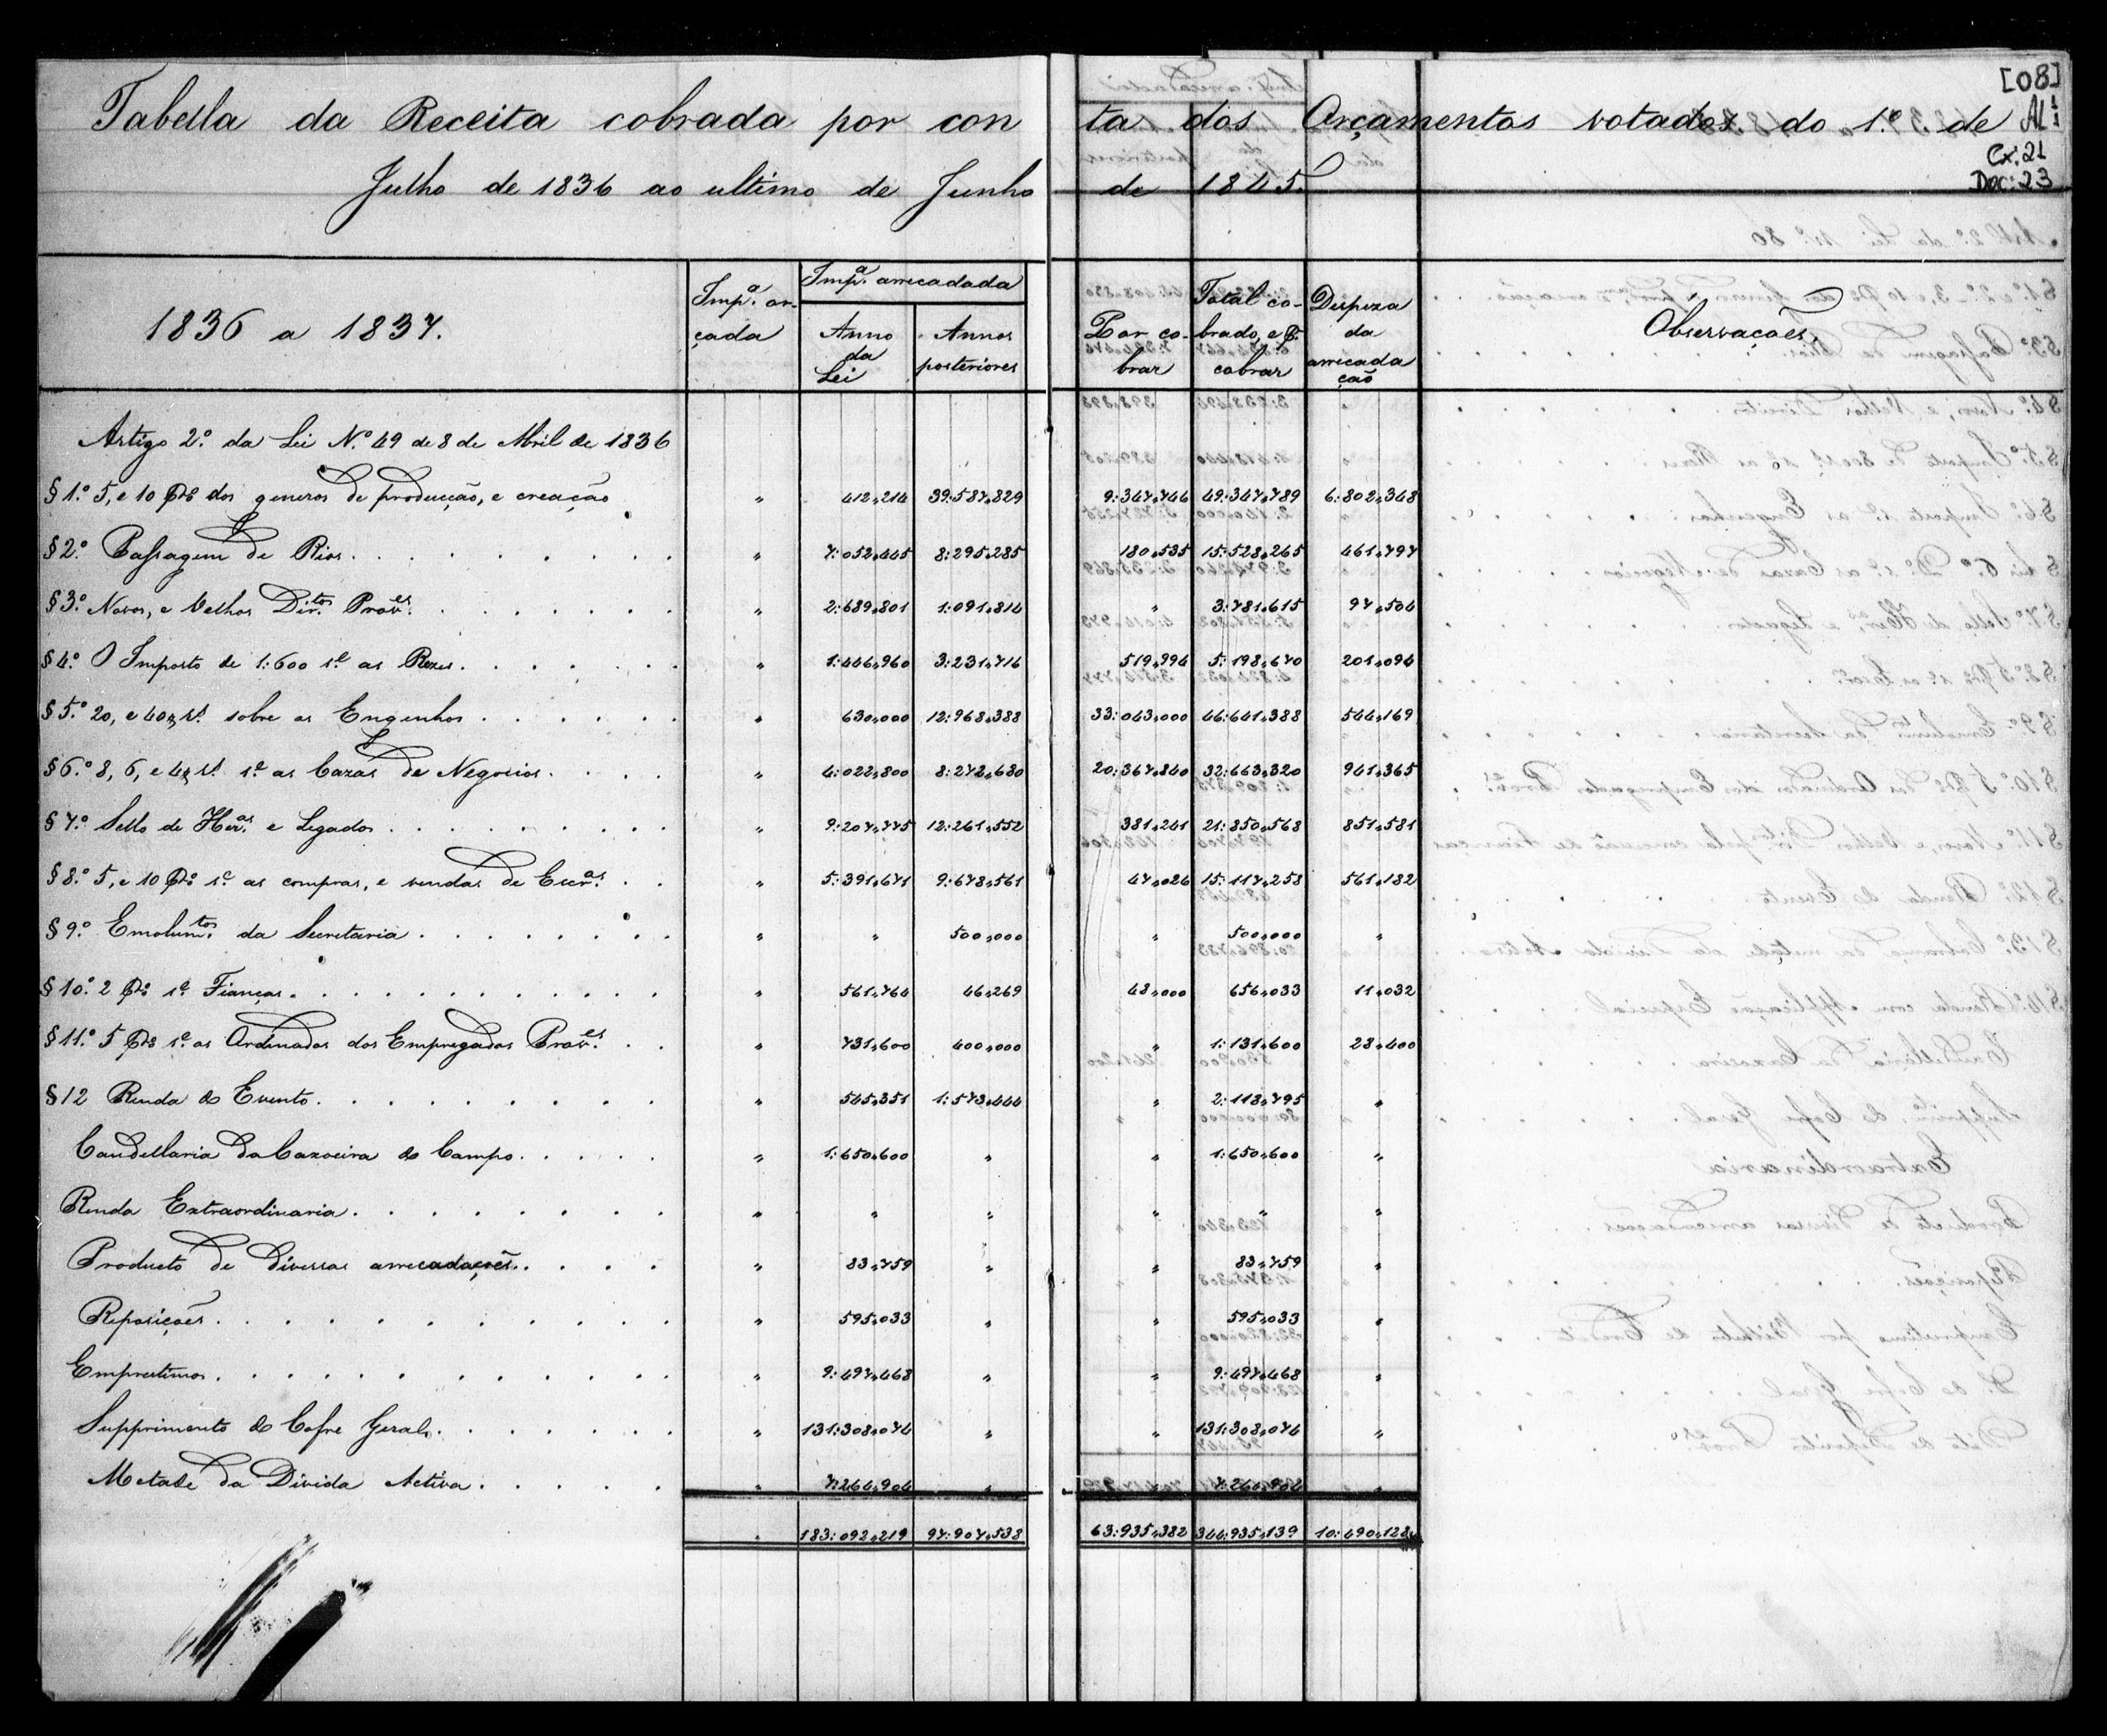 [08]
Tabella da Receita cobrada por conta dos Orçamentos votados do 1.º de
Al:
Cx:21
Doc:23
Julho de 1836 ao ultimo de Junho de 1845.
1836 a 1837. Imp.ª arçada Imp.ª arrecadada Anno da Lei Annos posteriores Por cobrar Total cobrado, e p.r cobrar Despeza da arrecadação Observações
Artigo 2.º da Lei N.º 49 de 8 de Abril de 1836
§ 1.º 5, e 10 p% dos generos de producção, e creação " 412,214 39:587,829 9:347,746 49:347,789 6:802,348
§ 2.º Passagem de Rios " 7:052,445 8:295,285 180,535 15:528,265 461,797
§ 3.º Novos, e Velhos Dir.tos Prov.es " 2:689,801 1:091,814 " 3:781,615 97,504
§ 4.º O Imposto de 1:600 r.s as Rezes " 1:446,960 3:231,716 519,994 5:198,670 201,094
§ 5.º 20, e 40$ r.s sobre os Engenhos " 630,000 12:968,388 33:043,000 46:641,388 544,169
§ 6.º 8, 6, e 4$ r.s s.e as Cazas de Negocios " 4:022,800 8:272,680 20:367,840 32:663,320 941,365
§ 7.º Sello de Her.as e Legados " 9:207,775 12:261,552 381,241 21:850,568 851,581
§ 8.º 5, e 10 p% s.e as compras, e vendas de Escr.as " 5:391,671 9:678,561 47,026 15:117,258 561,182
§ 9.º Emolum.tos da Secretaria " " 500,000 " 500,000 "
§ 10.º 2 p% s.e Fianças " 561,764 46,269 48,000 656,033 11,032
§ 11.º 5 p% s.e os Ordinados dos Empregados Prov.es " 731,600 400,000 " 1:131,600 28,400
§ 12 Renda do Evento " 545,351 1:573,444 " 2:118,795 "
Caudellaria da Caxoeira do Campo " 1:650,600 " " 1:650,600 "
Renda Extraordinaria " " " " " "
Producto de diversas arrecadações " 83,759 " " 83,759 "
Reposições " 595,033 " " 595,033 "
Emprestimos " 9:497,468 " " 9:497,468 "
Supprimento do Cofre Geral " 131:308,074 " " 131:308,074 "
Metade da Divida Activa " 7:264,904 " 7:264,904 "
" 183:092,219 97:907,538 63:935,382 344:935,139 10:490,128